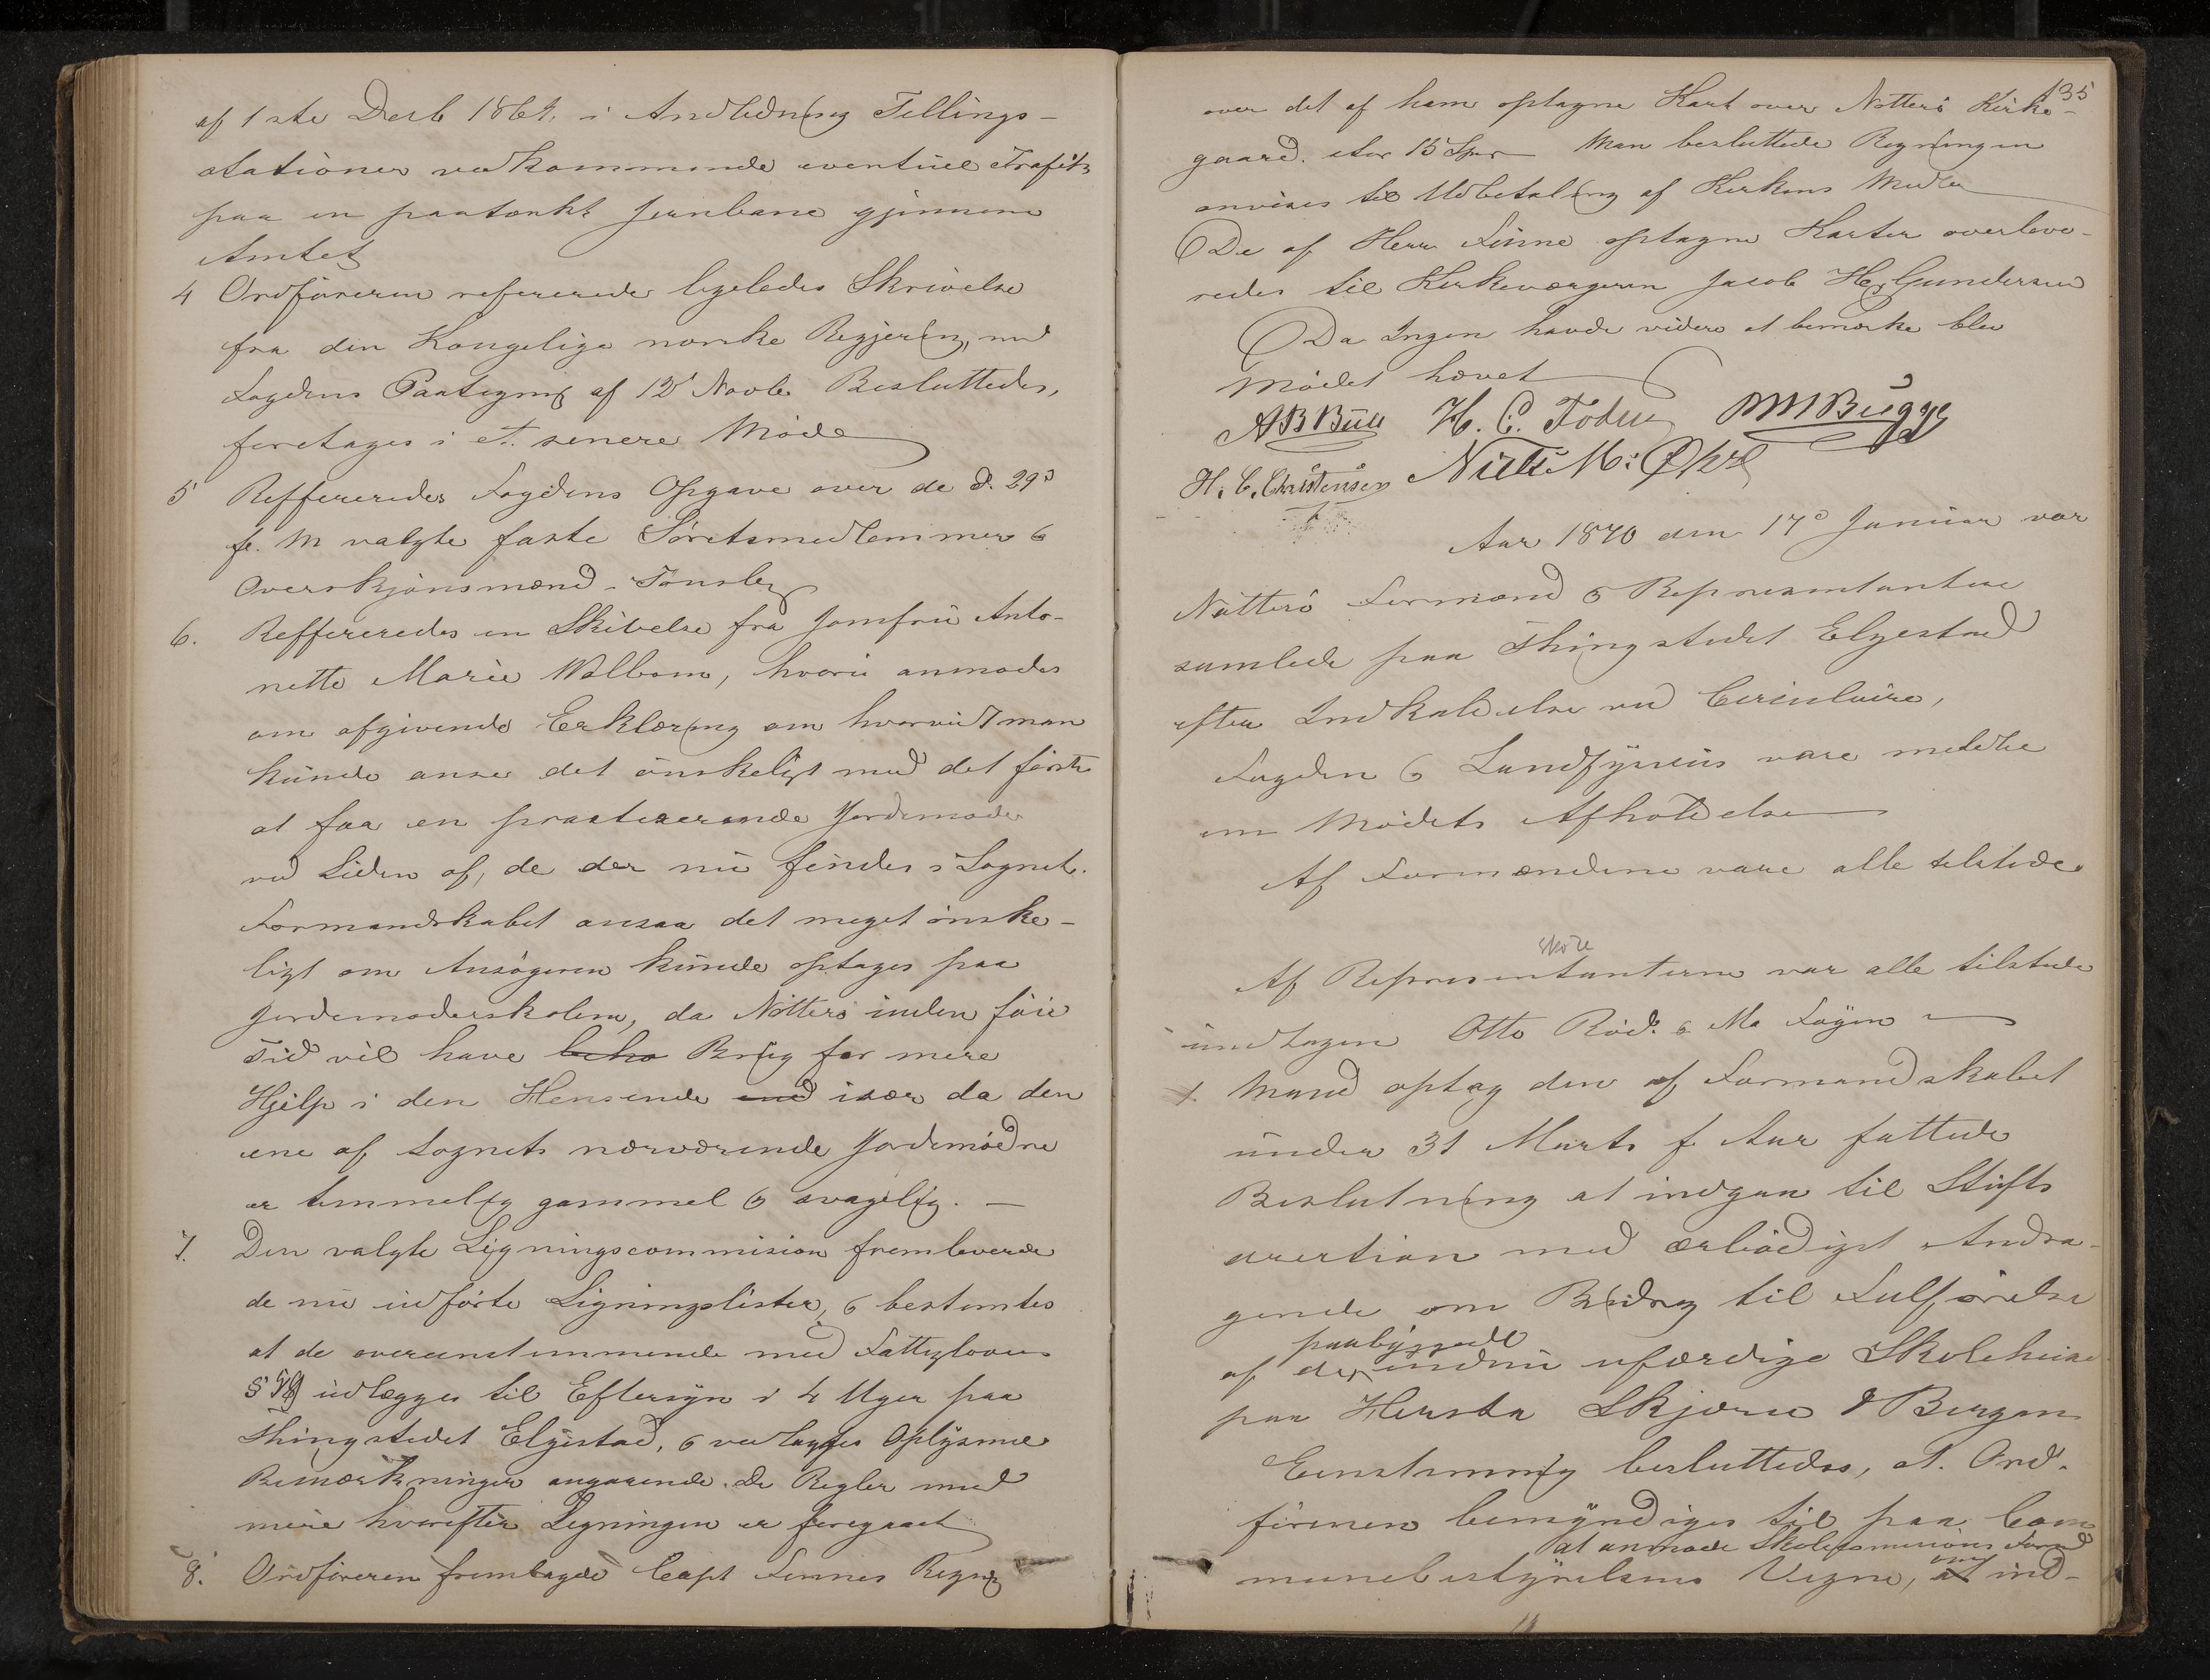 af 1ste Decb 1869. i Andledning Tellings-
stationer vedkommende eventuel Trafik
paa en paatænkt Jernbane gjennem
Amtet
4 Ordføreren refererede ligeledes Skrivelse
fra den Kongelige norske Regjering, med
Fogdens Paategning af 12' Novbr. Besluttedes,
foretages i et senere Møde
5 Reffereredes Fogdens Opgave over de d. 29d
f. M valgte faste Søretsmedlemmer &
Overskjønsmænd - Tønsberg
6. Reffereredes en Skivelse fra Jomfru Anto-
nette Marie Walbom, hvori anmodes
om afgivende Erklæring om hvorvidt man
kunde anse det ønskeligt med det første
at faa en practiserende Jordemoder
ved Siden af, de der nu findes i Sognet.
Formandskabet ansaa det meget ønske-
ligt om Ansøgeren kunde optages paa
Jordemoderskolen, da Nøtterø inden føie
Tid vil have beho Brug for mere
Hjelp i den Hensende end især da den
ene af Sognets nærværende Jordemødre
er temmelig gammel & svagelig. —
7. Den valgte Ligningscommision fremleverede
de nu udførte Ligningslister, & bestemtes
at de overeenstemmende med Fattigloven
§ 58 udlægges til Eftersyn i 4 Uger paa
Thingstedet Elgestad, & vedlægges Oplysende
Bemærkninger angaaende. De Regler med
mere hvorefter Ligningen er foregaaet
8. Ordføreren fremlagde Capt Finnes Regng
135
over det af ham optagne Kart over Nøtterø Kirke-
gaard. stor 15 Spr — Man besluttede Regningen
anvises til Udbetaling af Kirkens Midler
De af Herr Finne optagne Karter overleve-
redes til Kirkeværgeren Jacob H. Gundersen
Da Ingen havde videre at bemærke blev
Mødet hævet
AB Bull H. C. Foden MM Bugge
H. C. Christensen Niels M: Øhre
Aar 1870 den 17d Januar var
Nøtterø Formænd & Representantere
samlede paa Thingstedet Elgestad
efter Indkaldelse ved Circulaire,
Fogden & Landfysicus vare meldte
om Mødets Afholdelse
Af Formændene vare alle tilstede
Skole
Af Representanterne var alle tilstede
undtagen Otto Rød. & Ma Føyen
1. Mand optog den af Formandskabet
under 31 Marts f. Aar fattede
Beslutning at indgaa til Stifts
direction med ærbødigst Andra-
gende om Bidrag til Fulførelse
paabyggede
af de endnu ufærdige Skolehuse
paa Hersta Skjerve & Bergan
Eenstemmig besluttedes, at Ord-
føreren bemyndiges til paa Com
at anmode Skolecomisions Formd
munebestyrelsens Vegne, at om ind-